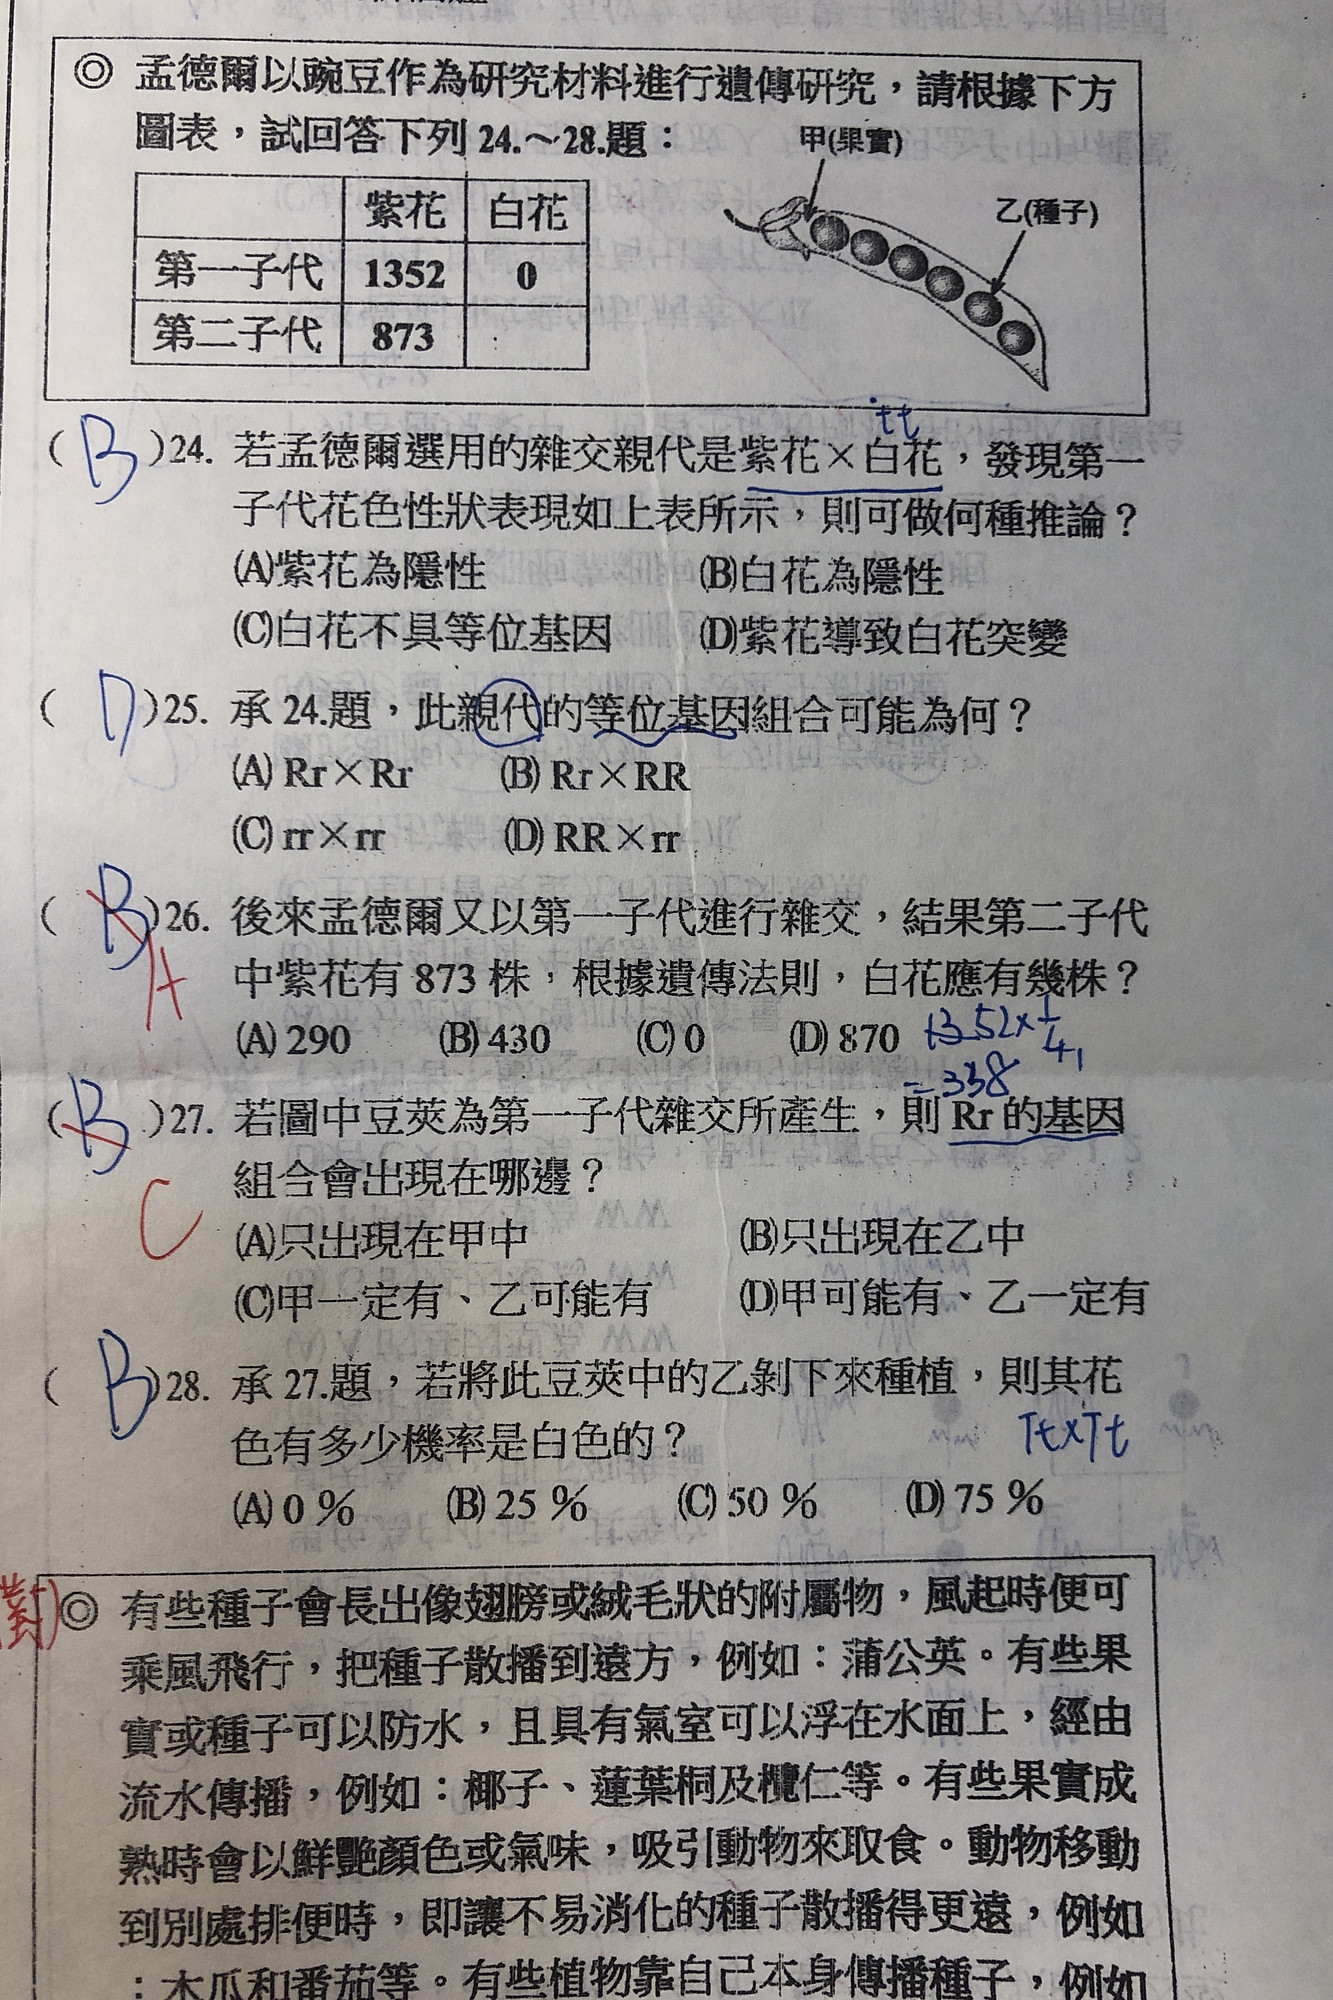 ◎ 孟德爾以豌豆作為研究材料進行遺傳研究，請根據下方
圖表，試回答下列24.～28.題：
甲(果實)
乙(種子)
紫花 白花
第一子代 1352 0
第二子代 873
tt
(B)24. 若孟德爾選用的雜交親代是紫花×白花，發現第一
子代花色性狀表現如上表所示，則可做何種推論？
(A)紫花為隱性 (B)白花為隱性
(C)白花不具等位基因 (D)紫花導致白花突變
(D)25. 承24.題，此親代的等位基因組合可能為何？
(A) Rr×Rr (B) Rr×RR
(C) rr×rr (D) RR×rr
(B)26. 後來孟德爾又以第一子代進行雜交，結果第二子代
A
中紫花有873株，根據遺傳法則，白花應有幾株？
(A) 290 (B) 430 (C) 0 (D) 870
1352×1/4
=338
(B)27. 若圖中豆莢為第一子代雜交所產生，則Rr的基因
組合會出現在哪邊？
C
(A)只出現在甲中 (B)只出現在乙中
(C)甲一定有、乙可能有 (D)甲可能有、乙一定有
(B)28. 承27.題，若將此豆莢中的乙剝下來種植，則其花
色有多少機率是白色的？
Tt×Tt
(A) 0％ (B) 25％ (C) 50％ (D) 75％
◎ 有些種子會長出像翅膀或絨毛狀的附屬物，風起時便可
乘風飛行，把種子散播到遠方，例如：蒲公英。有些果
實或種子可以防水，且具有氣室可以浮在水面上，經由
流水傳播，例如：椰子、蓮葉桐及欖仁等。有些果實成
熟時會以鮮艷顏色或氣味，吸引動物來取食。動物移動
到別處排便時，即讓不易消化的種子散播得更遠，例如
：木瓜和番茄等。有些植物靠自己本身傳播種子，例如